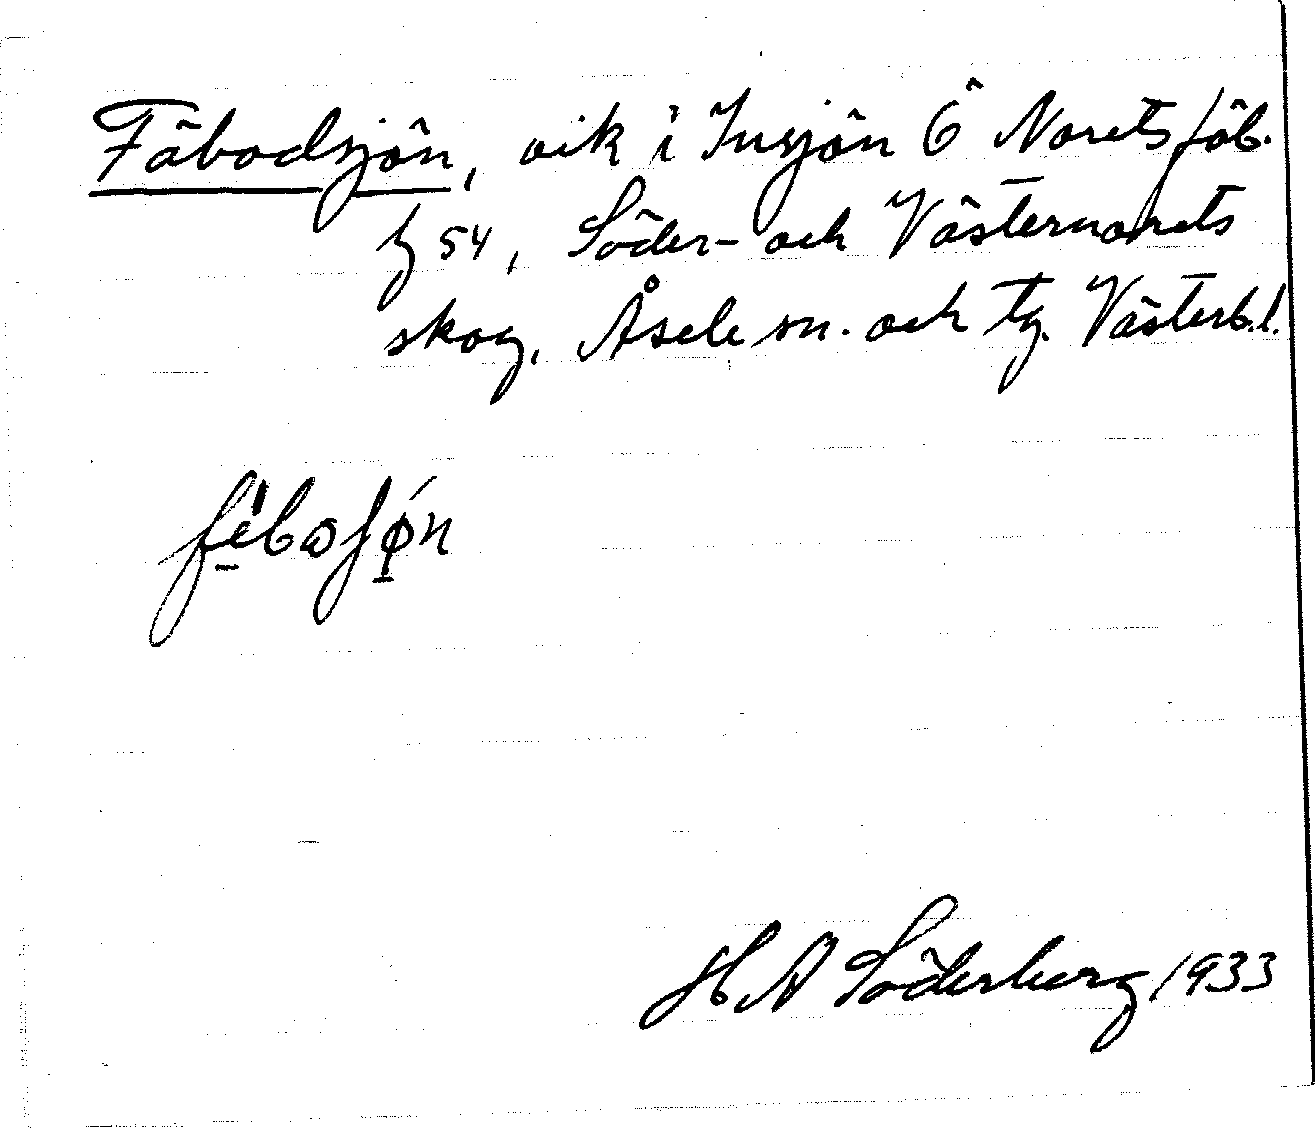 Fäbodsjön, vik i Insjön Ö Norets fäb.
h 54, Söder- och Västernorets
skog. Åsele sn. och tg. Västerb.l.
fèbos∫ǿn
H A Söderberg 1933